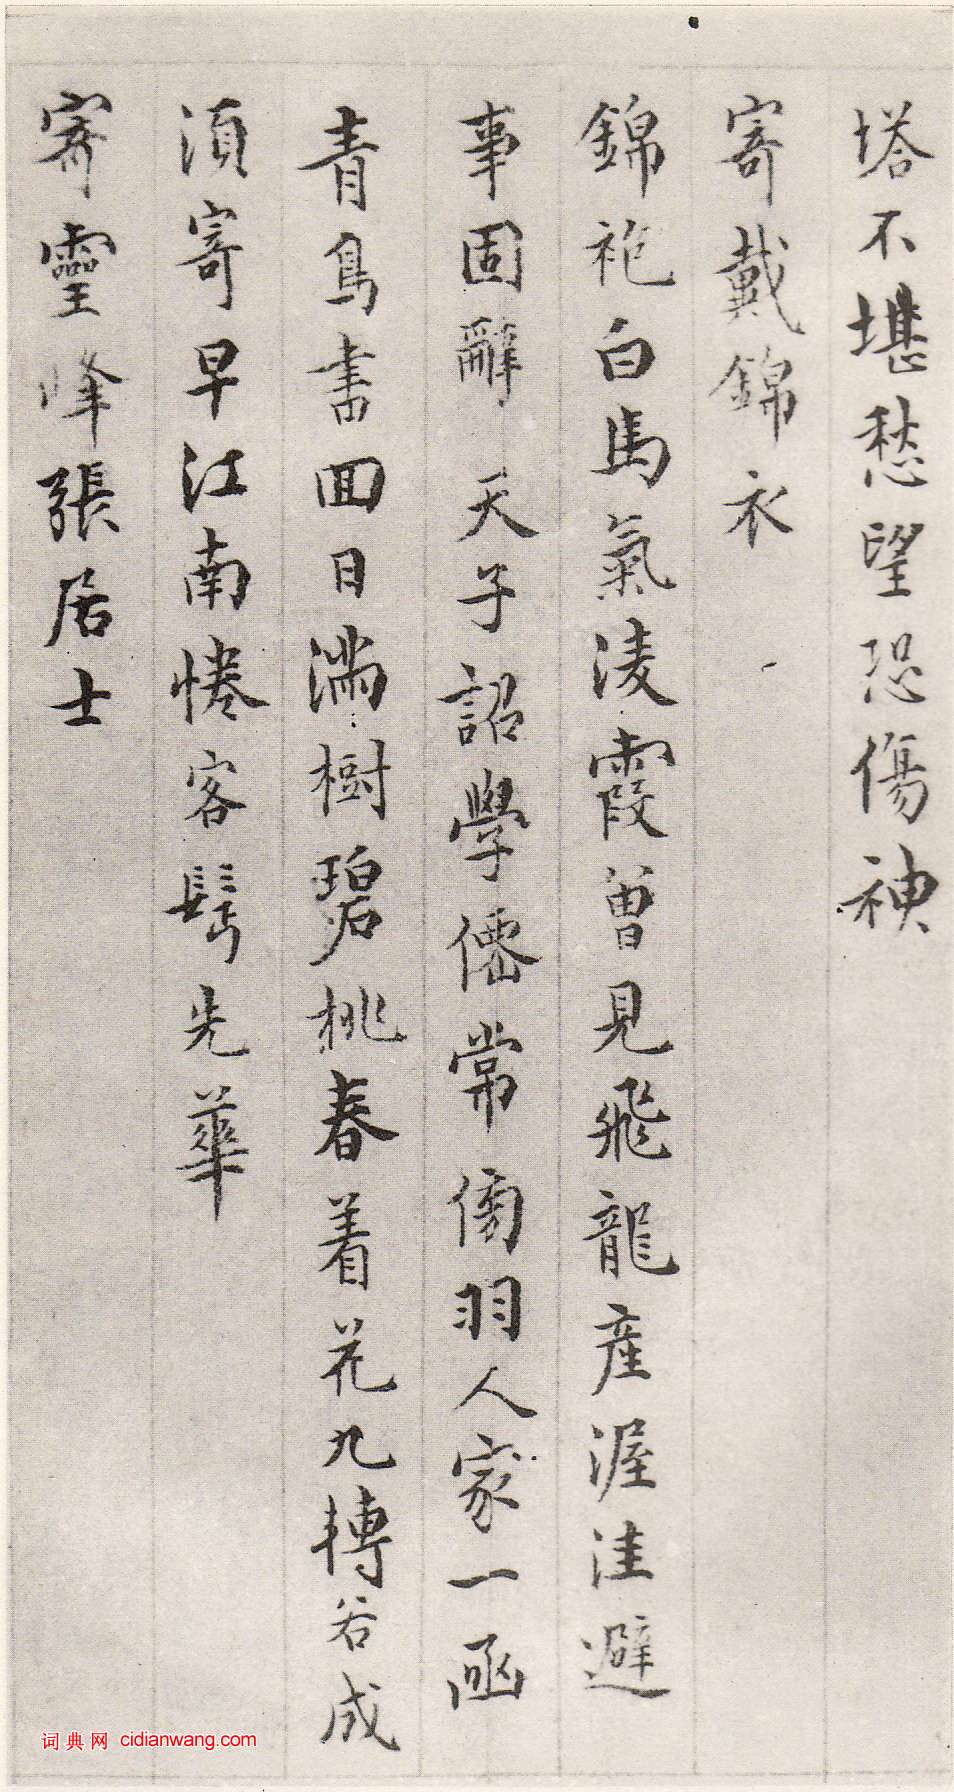 塔不堪愁望恐傷神
寄戴錦衣
錦袍白馬氣淩霞曾見飛龍産渥洼避
事固辭天子詔學僊常傍羽人家一函
青鳥書回日滿樹碧桃春着花九轉若成
須寄早江南惓客髩先華
寄靈峰張居士
词典网 cidianwang.com